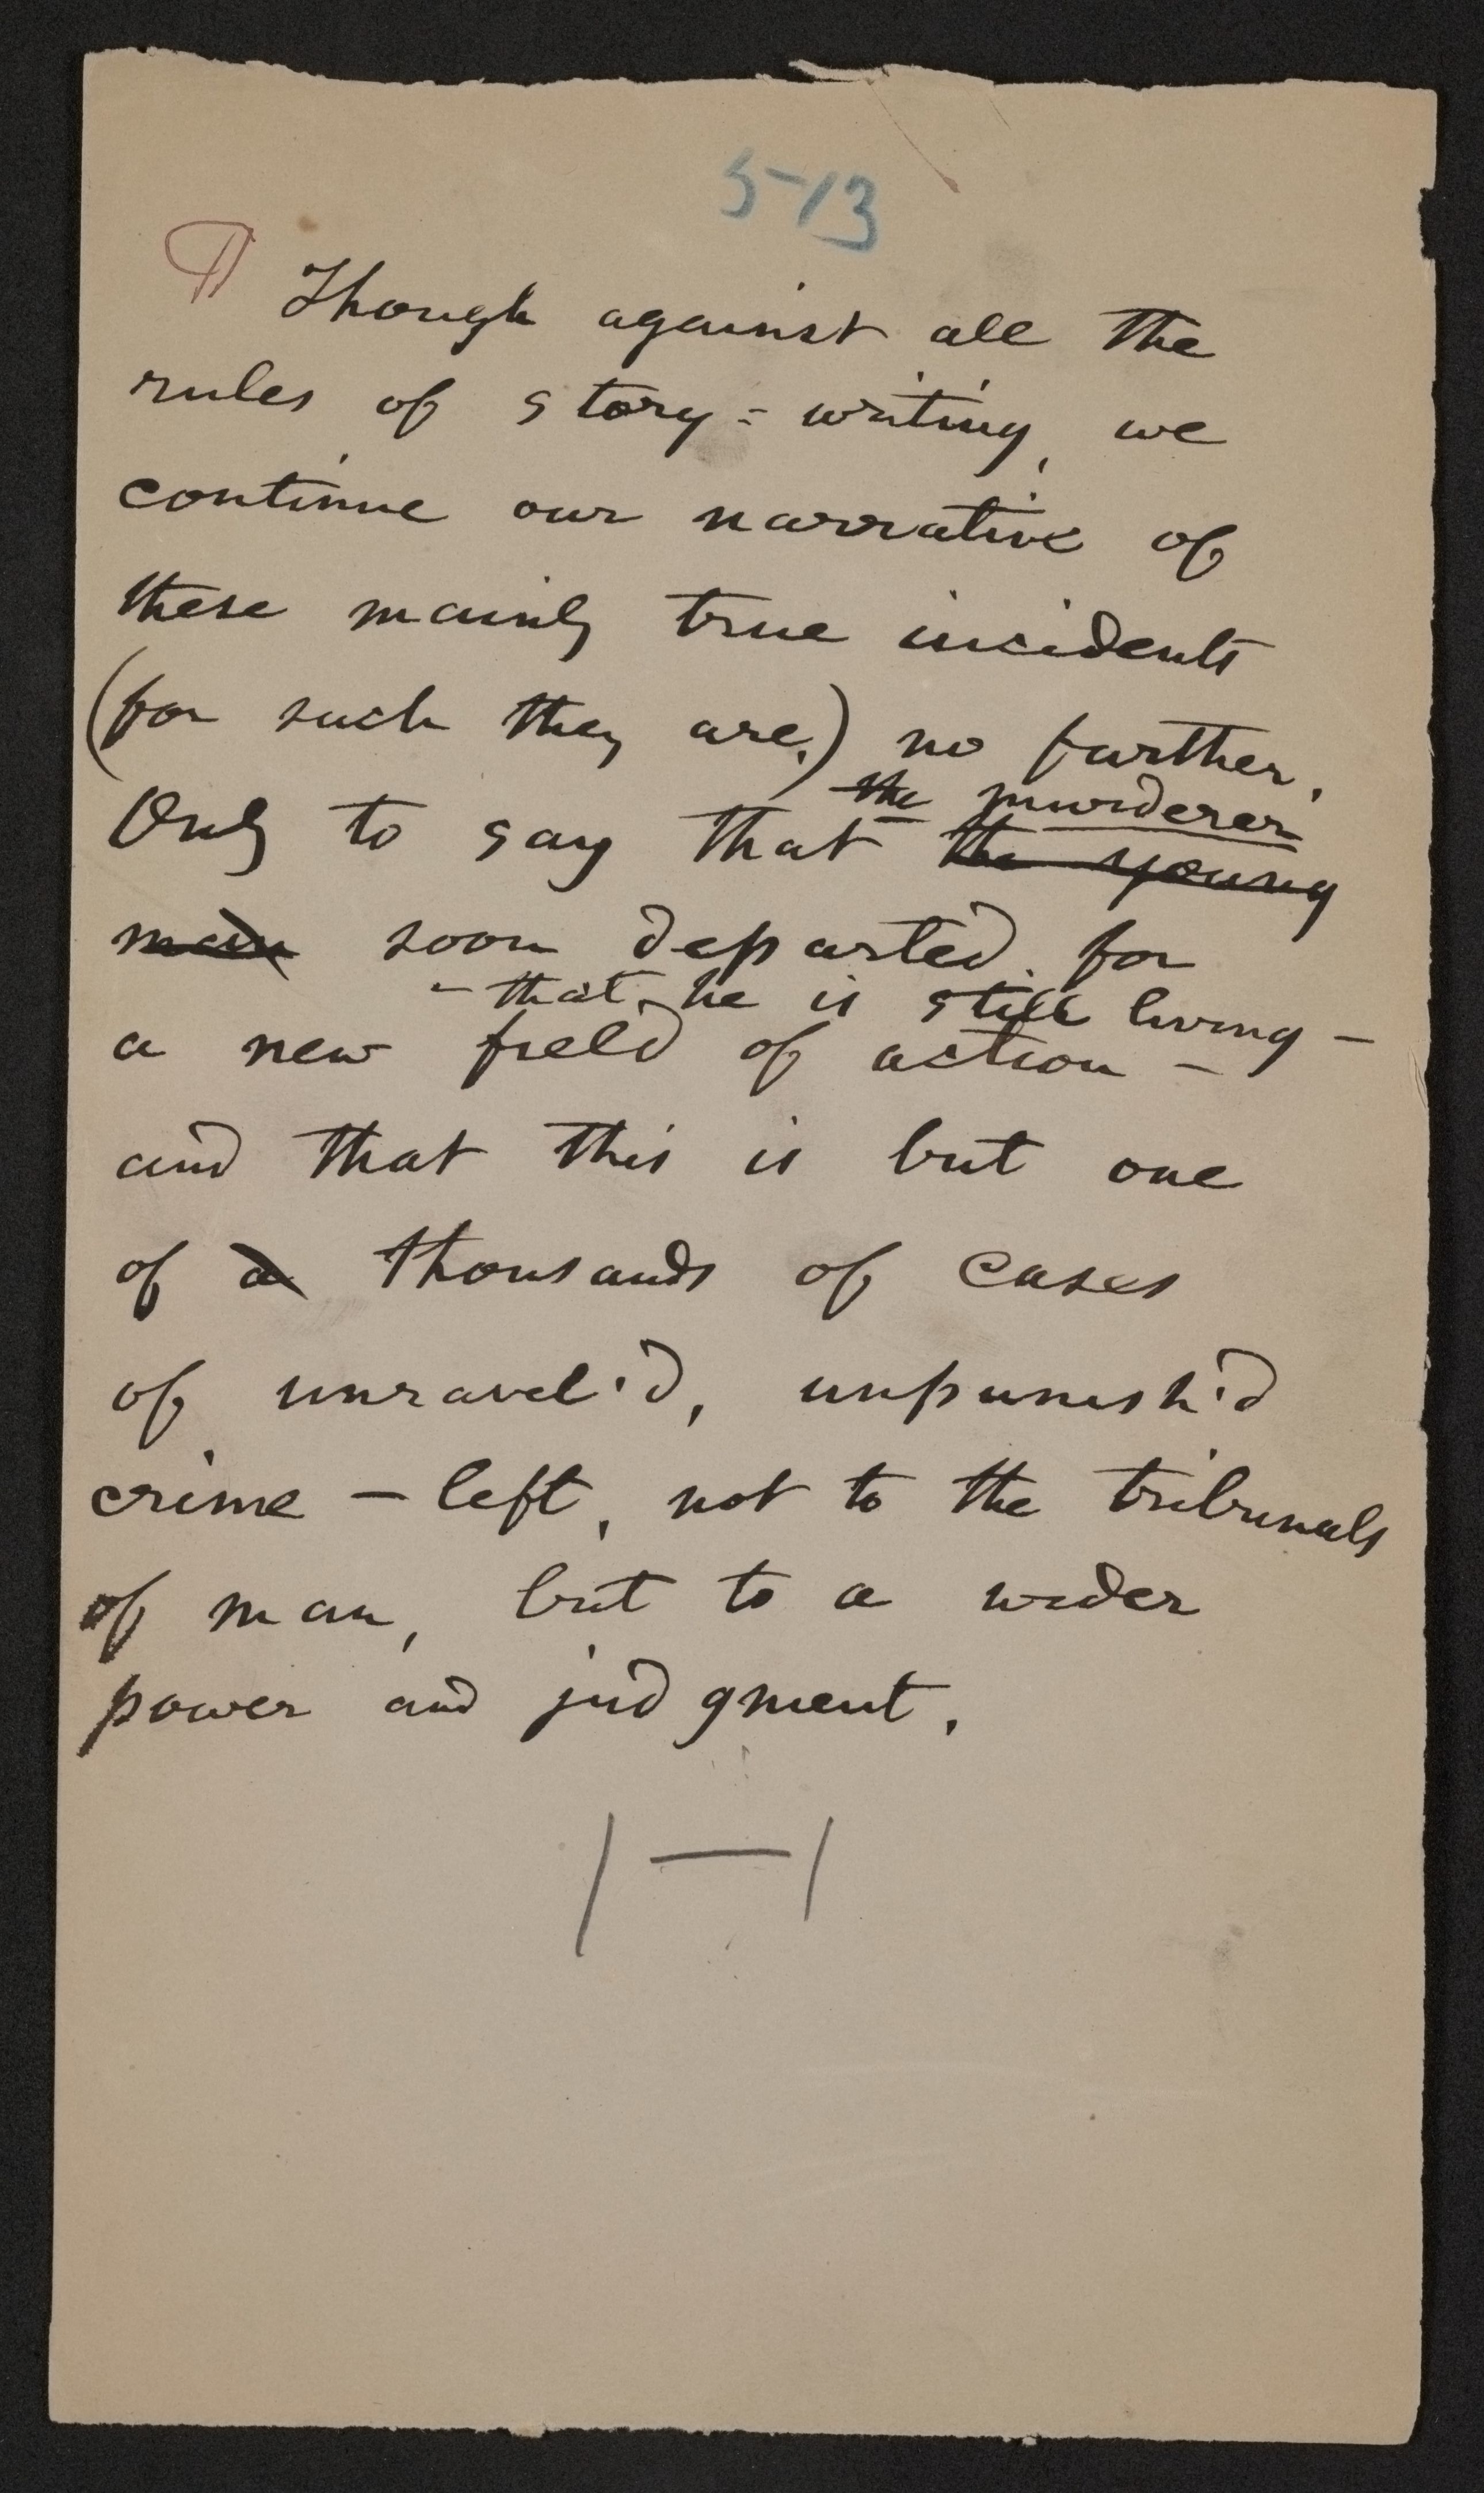 513
¶ Though against all the
rules of story=writing, we
continue our narrative of
these mainly true incidents
(for such they are,) no further.
the murderer
Only to say that the young
man soon departed for
- that he is still living -
a new field of action -
and that this is but one
of a thousands of cases
of unravel'd, unpunish'd
crime - left, not to the tribunals
of man, but to a wider
power and judgment.